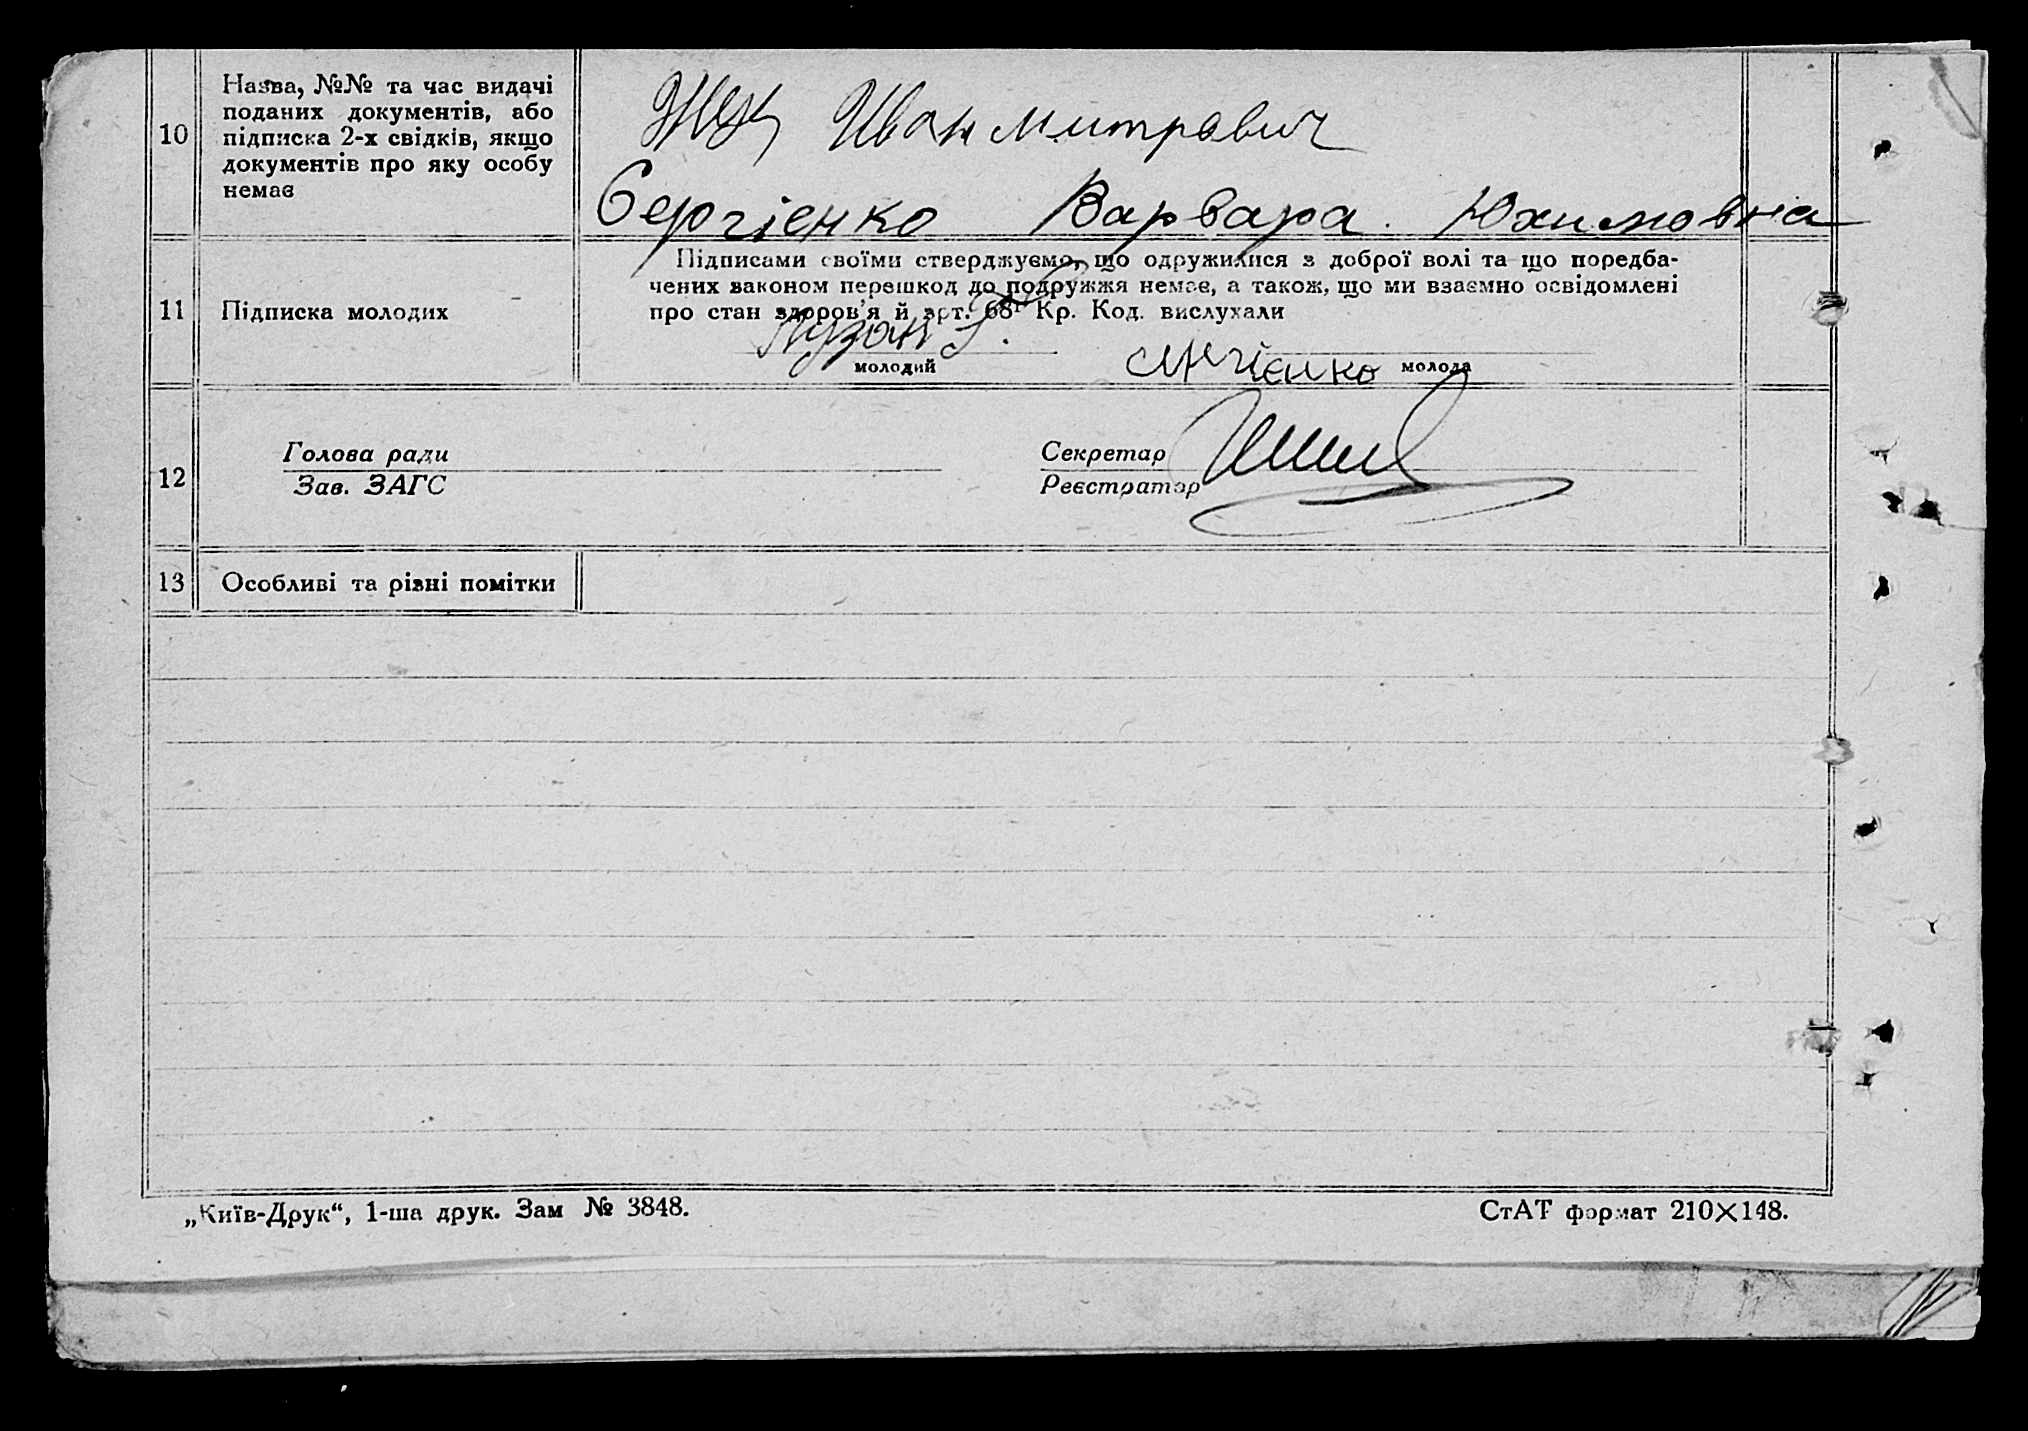 10
Назва, №№ та час видачі
поданих документів, або
підписка 2-х свідків, якщо
документів про яку особу
немає
Иван Митрович
Сергієнко Варвара Юхимовна
11
Підписка молодих
Підписами своїми стверджуємо, що одружилися з доброї волі та що передба-
чених законом перешкод до подружжя немає, а також, що ми взаємно освідомлені
про стан здоров'я й арт. 68¹ Кр. Код. вислухали
Пузан
молодий
Сергієнко
молода
12
Голова ради
Зав. ЗАГС
Секретар
Реєстратор
13
Особливі та різні помітки
„Київ-Друк“, 1-ша друк. Зам № 3848.
СтАТ формат 210×148.